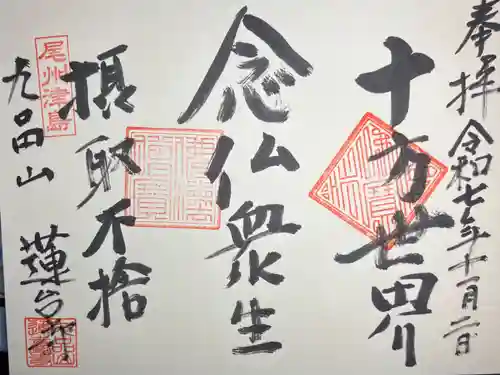 奉拝
令和七年十一月二日
十方世界
念仏衆生
摂取不捨
尾州津島
九品山
蓮台寺